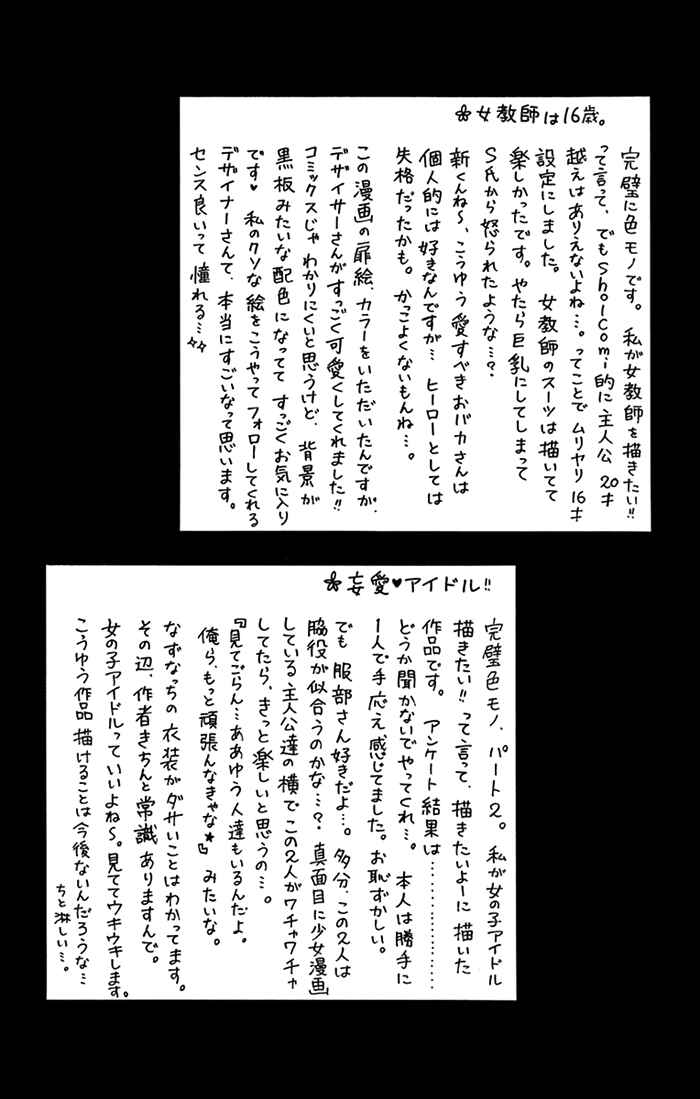 ❀女教師は16歳。
完璧に色モノです。 私が女教師を描きたい!!
って言って、でもSho-Comi的に主人公 20才
越えはありえないよね…。ってことで ムリヤリ 16才
設定にしました。 女教師のスーツは描いてて
楽しかったです。やたら巨乳にしてしまって
S氏から怒られたような…?
新くんね〜、こうゆう愛すべきおバカさんは
個人的には好きなんですが… ヒーローとしては
失格だったかも。かっこよくないもんね…。
この漫画の扉絵、カラーをいただいたんですが、
デザイサーさんがすっごく可愛くしてくれました!!
コミックスじゃ わかりにくいと思うけど、背景が
黒板みたいな配色になってて すっごくお気に入り
です♥ 私のクソな絵をこうやってフォローしてくれる
デザイナーさんて、本当にすごいなって思います。
センス良いって 憧れる…✧✧
❀妄愛♥アイドル!!
完璧色モノ、パート2。 私が女の子アイドル
描きたい!!って言って、描きたいよーに描いた
作品です。 アンケート結果は………………
どうか聞かないでやってくれ…。 本人は勝手に
1人で手応え、感じてました。お恥ずかしい。
でも 服部さん好きだよ…。多分、この2人は
脇役が似合うのかな…? 真面目に少女漫画
している主人公達の横で この2人がワチャワチャ
してたら、きっと楽しいと思うの…。
『見てごらん…ああゆう人達もいるんだよ。
俺ら、もっと頑張んなきゃな★』みたいな。
なずなっちの衣装がダサいことはわかってます。
その辺、作者きちんと常識ありますんで。
女の子アイドルっていいよね〜。見ててウキウキします。
こうゆう作品 描けることは今後ないんだろうな…
ちと淋しい…。